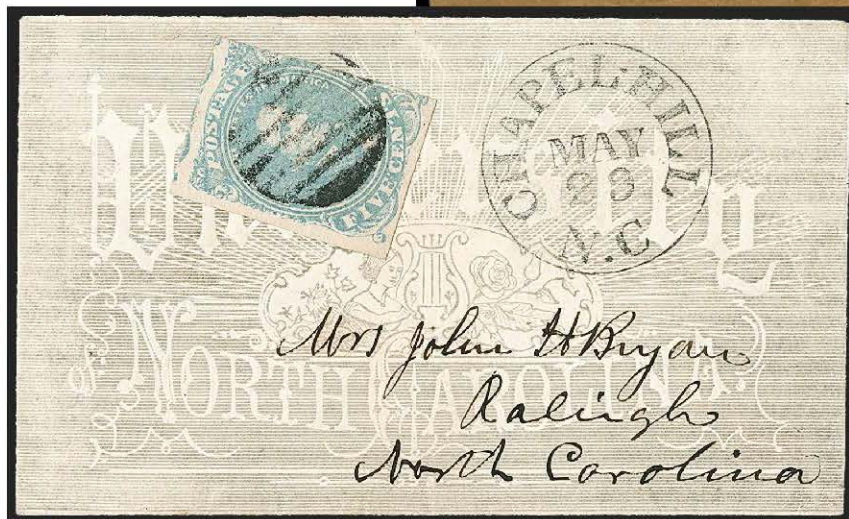 POSTAGE
FIVE CENTS
CHAPEL HILL
MAY
28
N.C
University
NORTH CAROLINA.
Mrs John H Bryan
Raleigh
North Carolina